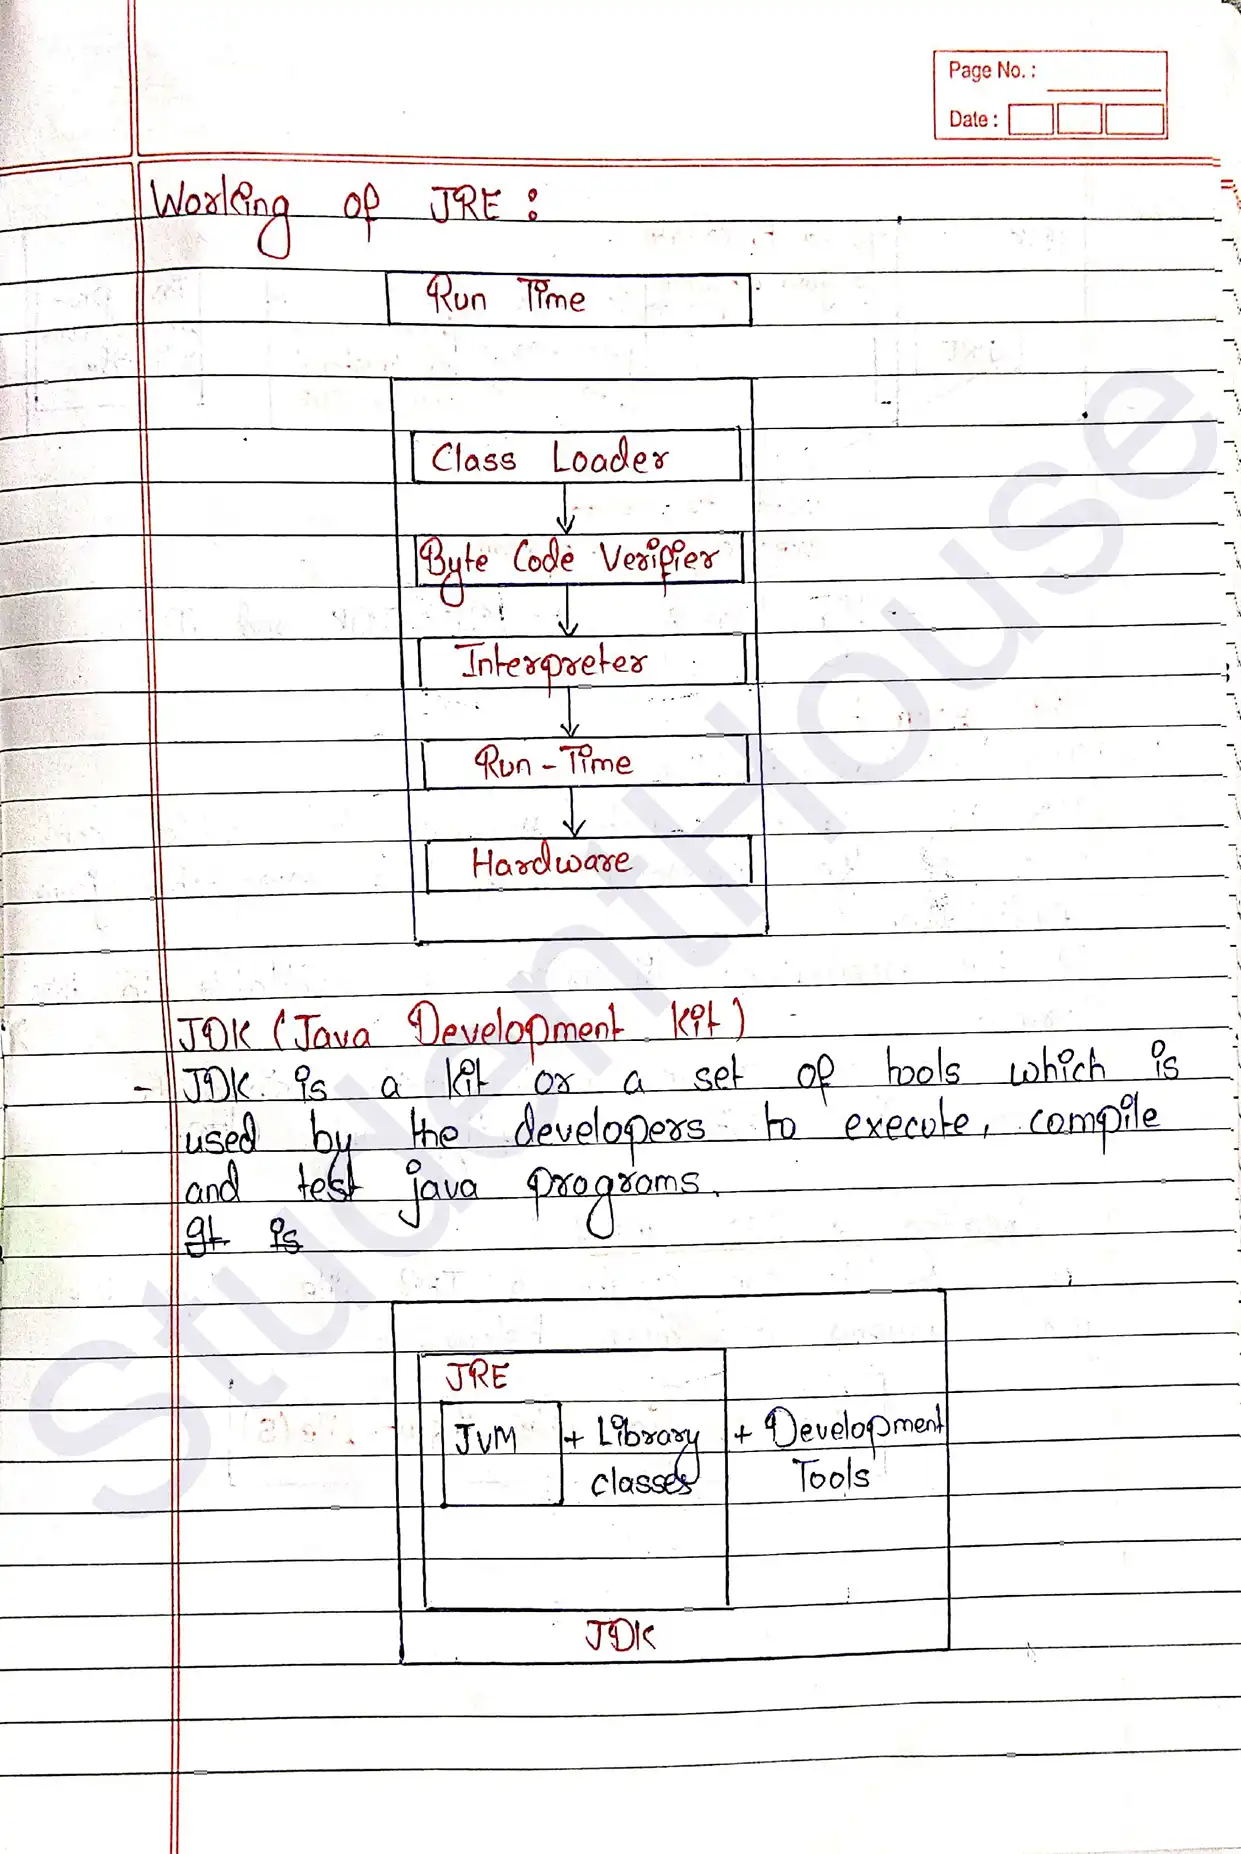 Page No. :
Date :
Working of JRE :
Run Time
Class Loader
Byte Code Verifier
Interpreter
Run-Time
Hardware
JDK (Java Development Kit)
- JDK is a kit or a set of tools which is
used by the developers to execute, compile
and test java programs.
It is
JRE
JVM + Library + Development
classes Tools
JDK
StudentHouse